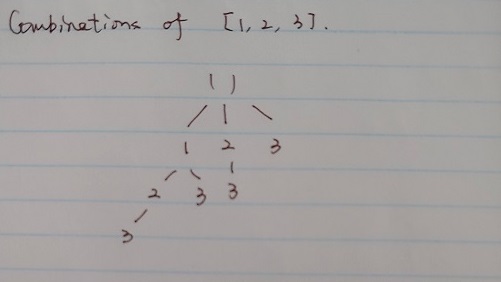 Combinations of [1, 2, 3].
( )
1 2 3
2 3 3
3